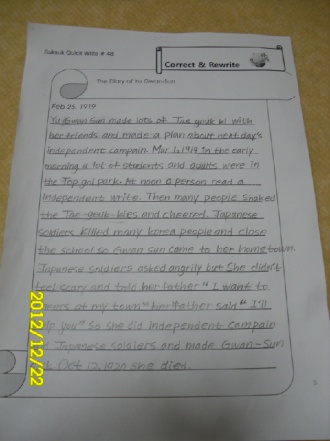 Subsuk Quick Write # 48
Correct & Rewrite
The Diary of Yu Gwan-Sun
Feb 25, 1919
Yu Gwan Sun made lots of Tae geuk ki with
her friends and made a plan about next day's
independent campain. Mar 1, 1919 In the early
morning a lot of students and adults were in
the Top gol park. At noon a person read a
independent write. Then many people shaked
the Tae-geuk-kies and cheered. Japanese
soldiers killed many korea people and close
the school so Gwan sun came to her hometown.
Japanese soldiers asked angrily but She didn't
feel scary and told her father " I want to
at my town" her father said " I'll
help you" So she did Independent campain
Japanese soldiers and made Gwan-Sun
Oct 12, 1920 she died.
5
2012/12/22